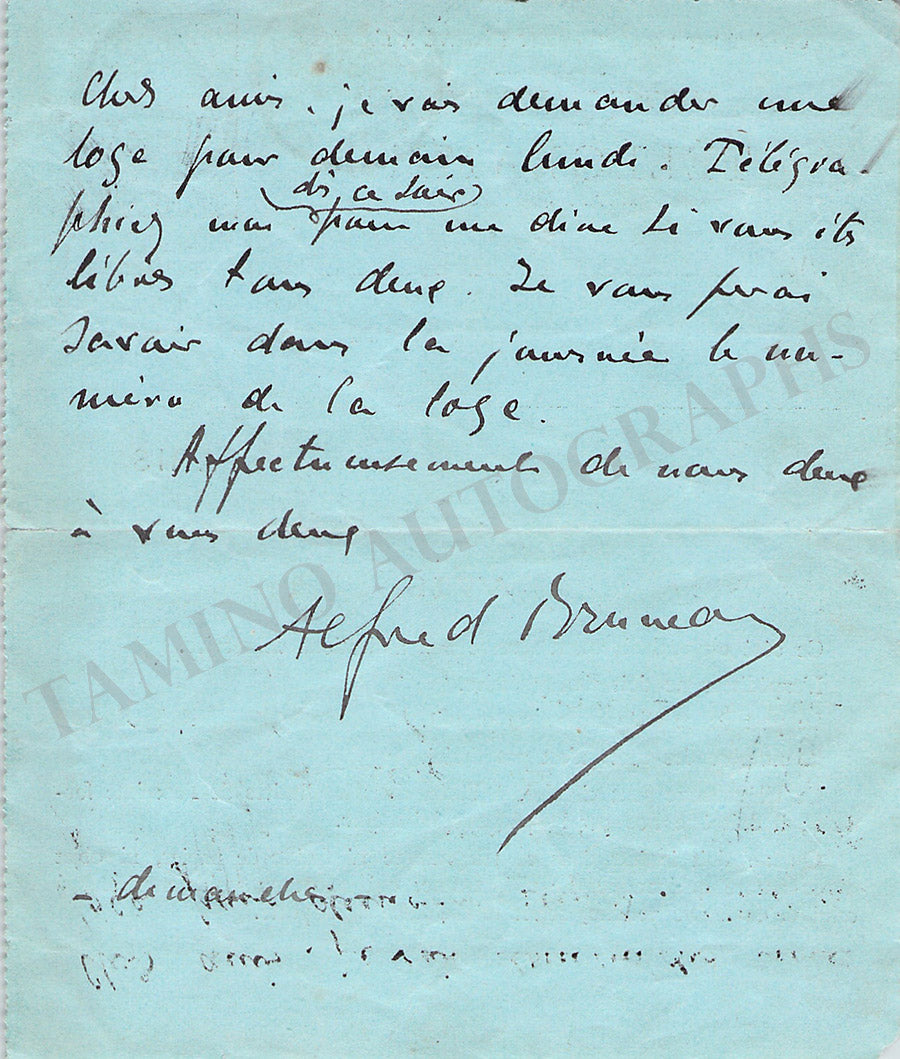 Chers amis, je vais demander une
loge pour demain lundi. Télégra-
dès ce soir
phiez moi pour me dire si vous êtes
libres tous deux. Je vous ferai
savoir dans la journée le nu-
méro de la loge.
Affectueusement de nous deux
à vous deux
Alfred Bruneau
- dimanche
TAMINO AUTOGRAPHS